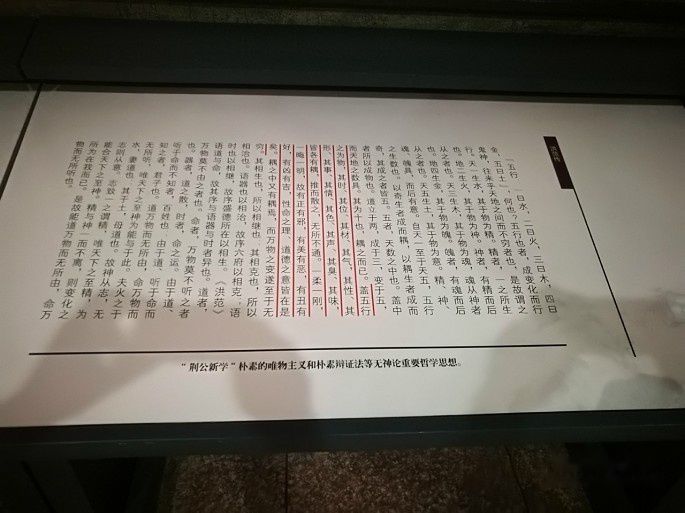 洪范传
“五行，一曰水，二曰火，三曰木，四曰
金，五曰土”，何也？五行也者，成变化而行
鬼神，往来乎天地之间而不穷者也，是故谓之
行。天一生水，其于物为精。精者，一之所生
也。地二生火，其于物为神。神者，有精而后
从之者也。天三生木，其于物为魂。魂从神者
也。地四生金，其于物为魄。魄者，有魂而后
从之者也。天五生土，其于物为意。精、神、
魂、魄具，而后有意。自天一至于天五，五行
之生数也。以奇生者成而耦，以耦生者成而
奇，其成之者皆五。五者，天数之中也。盖中
者所以成物也。道立于两，成于三，变于五，
而天地之数具。其为十也，耦之而已。盖五行
之为物，其时、其位、其材、其气、其性、其
形、其事、其情、其色、其声、其臭、其味，
皆各有耦，推而散之，无所不通。一柔一刚，
一晦一明，故有正有邪，有美有恶，有丑有
好，有凶有吉，性命之理、道德之意皆在是
矣。耦之中又有耦焉，而万物之变遂至于无
穷。其相生也，所以相继也；其相克也，所以
相治也。语器也以相治，故序六府以相克；语
时也以相继，故序盛德所在以相生。《洪范》
语道与命，故其序与语器与时者异也。道者，
万物莫不由之者也。命者，万物莫不听之者
也。器者，道之散；时者，命之运。由于道、
听于命而不知者，百姓也；由于道、听于命而
知之者，君子也。道万物而无所由，命万物而
无所听，唯天下之至神为能与于此。夫火之于
水，妻道也；其于土，母道也。故神从志，无
志则从意。志致一之谓精，唯天下之至精，为
能合天下之至神。精与神一而不离，则变化之
所为在我而已。是故能道万物而无所由，命万
物而无所听也。
“荆公新学”朴素的唯物主义和朴素辩证法等无神论重要哲学思想。